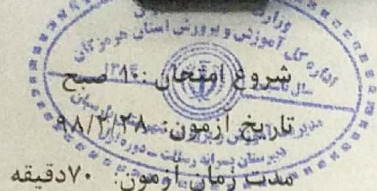 اداره کل آموزش و پرورش استان هرمزگان
شروع امتحان: ۱۰ صبح
تاریخ آزمون: ۹۸/۲/۲۸
مدت زمان آزمون: ۷۰دقیقه